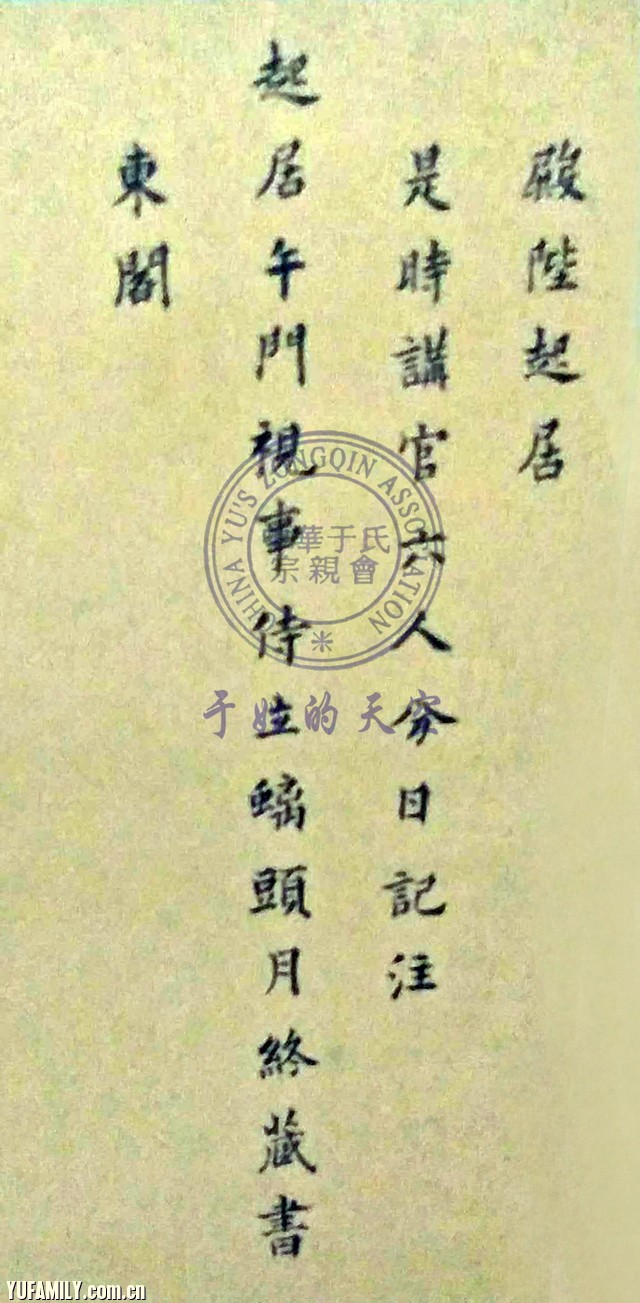 殿陛起居
是時講官六人分日記注
起居午門視事侍立螭頭月終藏書
東閣
CHINA YU'S ZONGQIN ASSOCIATION
華于氏
宗親會
于姓的天空
YUFAMILY.com.cn